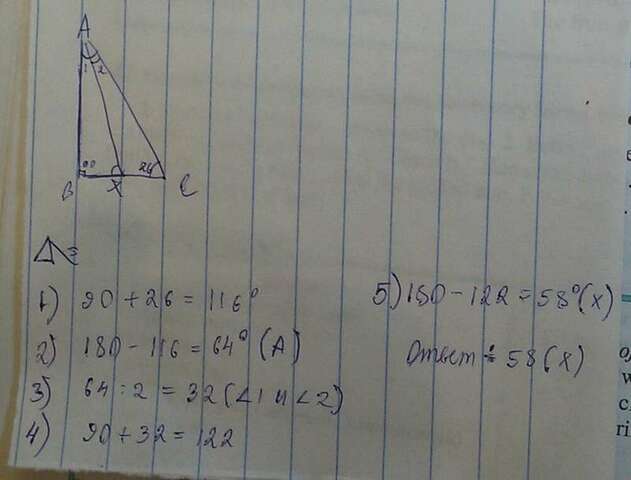 A
1 2
90 26
B X C
1) 90 + 26 = 116°
2) 180 - 116 = 64° (A)
3) 64 : 2 = 32 (<1 и <2)
4) 90 + 32 = 122
5) 180 - 122 = 58° (x)
Ответ: 58 (x)